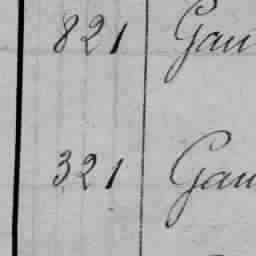 821 Gau
321 Gau